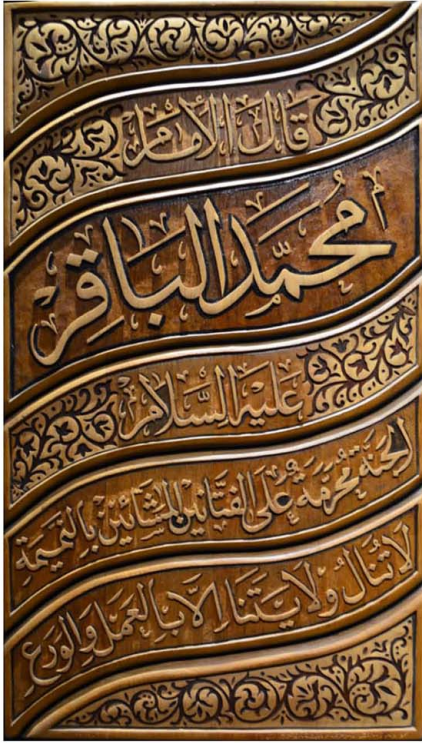 قال الإمام
محمد الباقر
عليه السلام
الجنة محرمة على الفتانين المشائين بالنميمة
لا تنال ولايتنا إلا بالعمل والورع